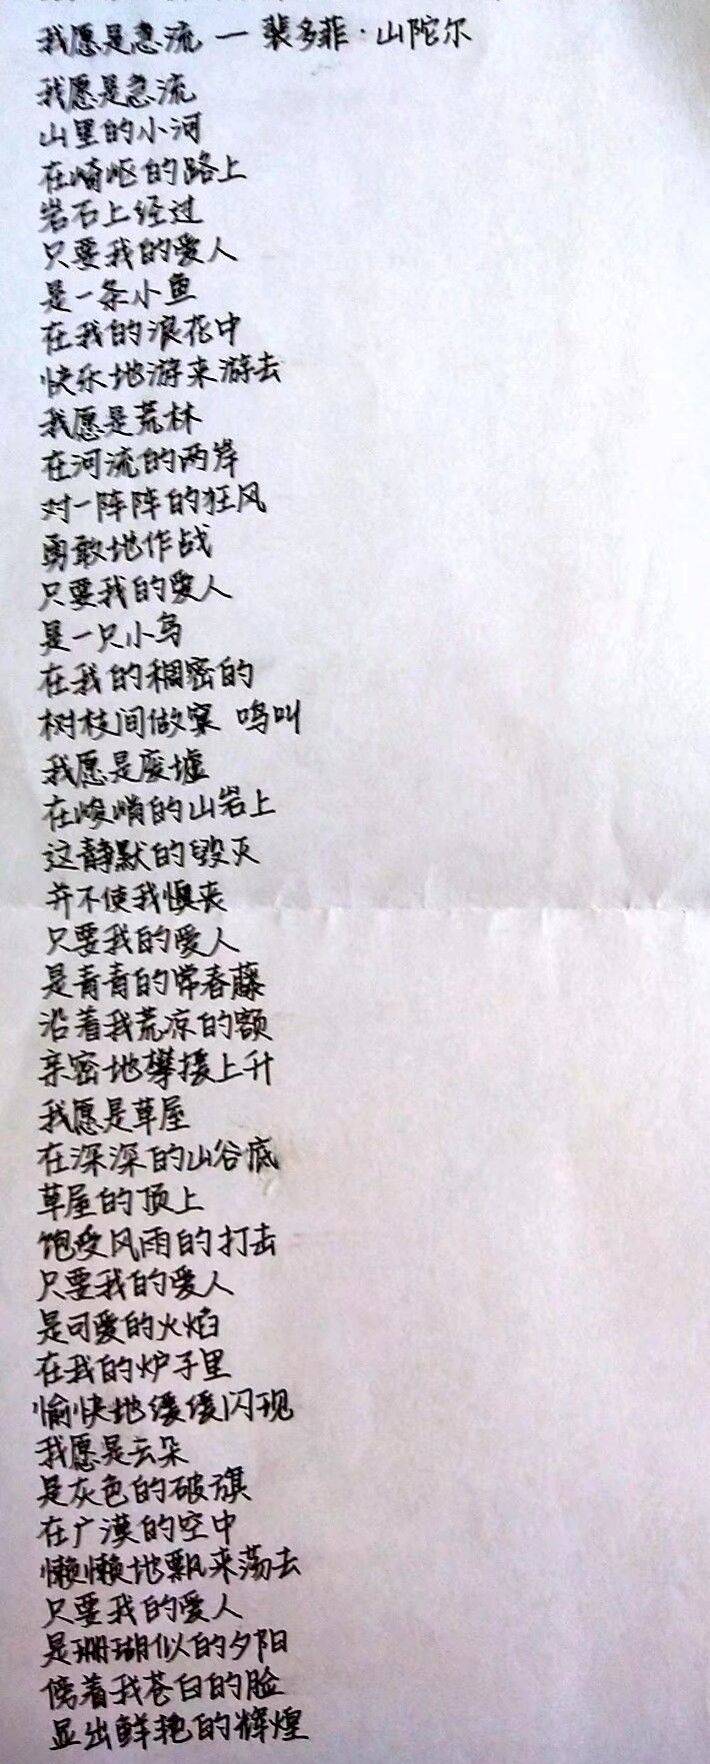 我愿是急流 — 裴多菲·山陀尔
我愿是急流
山里的小河
在崎岖的路上
岩石上经过
只要我的爱人
是一条小鱼
在我的浪花中
快乐地游来游去
我愿是荒林
在河流的两岸
对一阵阵的狂风
勇敢地作战
只要我的爱人
是一只小鸟
在我的稠密的
树枝间做窠 鸣叫
我愿是废墟
在峻峭的山岩上
这静默的毁灭
并不使我懊丧
只要我的爱人
是青青的常春藤
沿着我荒凉的额
亲密地攀援上升
我愿是草屋
在深深的山谷底
草屋的顶上
饱受风雨的打击
只要我的爱人
是可爱的火焰
在我的炉子里
愉快地缓缓闪现
我愿是云朵
是灰色的破旗
在广漠的空中
懒懒地飘来荡去
只要我的爱人
是珊瑚似的夕阳
傍着我苍白的脸
显出鲜艳的辉煌